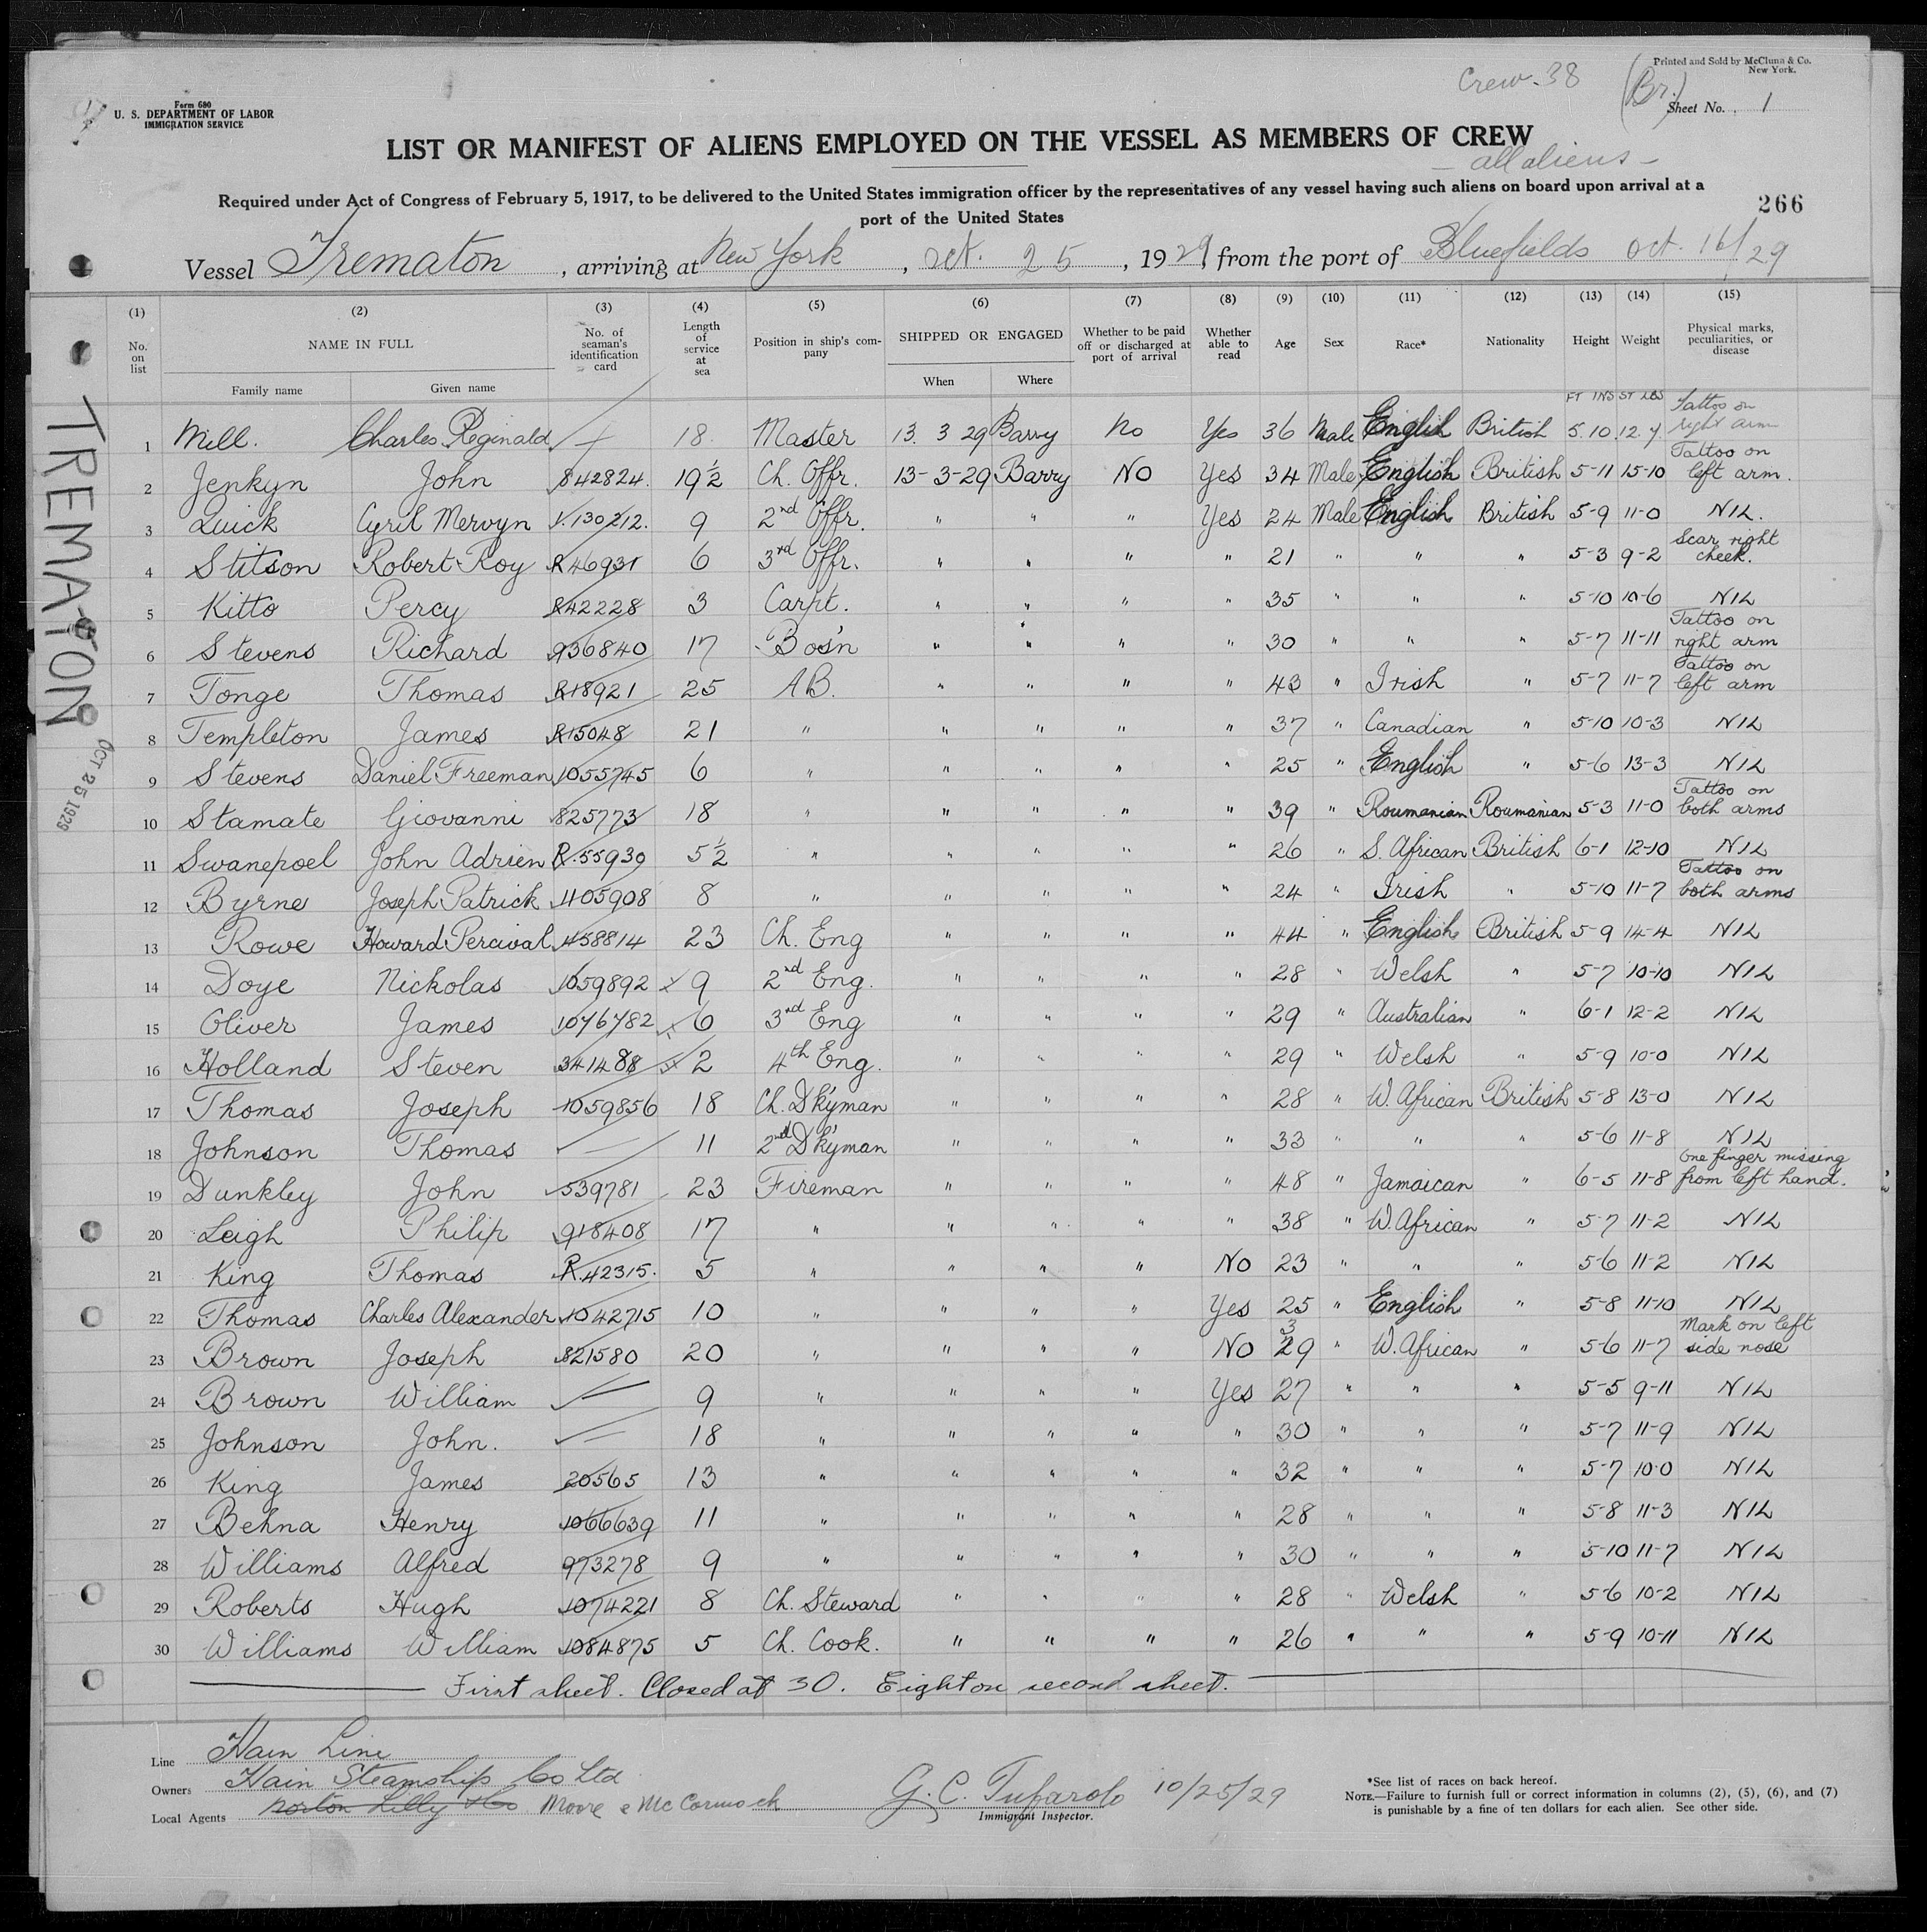 Printed and Sold by McClung & Co.
New York.
Crew-38
(Br.)
Sheet No. 1
Form 680
U. S. DEPARTMENT OF LABOR
IMMIGRATION SERVICE
LIST OR MANIFEST OF ALIENS EMPLOYED ON THE VESSEL AS MEMBERS OF CREW
- all aliens -
Required under Act of Congress of February 5, 1917, to be delivered to the United States immigration officer by the representatives of any vessel having such aliens on board upon arrival at a
port of the United States
266
Vessel Trematon, arriving at New York, Oct. 25, 1929, from the port of Bluefields Oct. 16/29
(1) (2) (3) (4) (5) (6) (7) (8) (9) (10) (11) (12) (13) (14) (15)
No. on list NAME IN FULL No. of seaman's identification card Length of service at sea Position in ship's company SHIPPED OR ENGAGED Whether to be paid off or discharged at port of arrival Whether able to read Age Sex Race* Nationality Height Weight Physical marks, peculiarities, or disease
Family name Given name When Where
FT INS ST LBS
1 Mill. Charles Reginald 18 Master 13. 3 29 Barry No Yes 36 Male English British 5.10 12.7 Tattoo on right arm
2 Jenkyn John 842824. 19½ Ch. Offr. 13-3-29 Barry NO Yes 34 Male English British 5-11 15-10 Tattoo on left arm.
3 Quick Cyril Mervyn 130212. 9 2nd Offr. " " " Yes 24 Male English British 5-9 11-0 NIL.
4 Stitson Robert Roy R46931 6 3rd Offr. " " " " 21 " " " 5-3 9-2 Scar right cheek.
5 Kitto Percy R42228 3 Carpt. " " " " 35 " " " 5-10 10-6 NIL
6 Stevens Richard 936840 17 Bos'n " " " " 30 " " " 5-7 11-11 Tattoo on right arm
7 Tonge Thomas R18921 25 AB. " " " " 43 " Irish " 5-7 11-7 Tattoo on left arm
8 Templeton James R15048 21 " " " " " 37 " Canadian " 5-10 10-3 NIL
9 Stevens Daniel Freeman 1055745 6 " " " " " 25 " English " 5-6 13-3 NIL
10 Stamate Giovanni 825773 18 " " " " " 39 " Roumanian Roumanian 5-3 11-0 Tattoo on both arms
11 Swanepoel John Adrien R.55939 5½ " " " " " 26 " S. African British 6-1 12-10 NIL
12 Byrne Joseph Patrick 1105908 8 " " " " " 24 " Irish " 5-10 11-7 Tattoo on both arms
13 Rowe Howard Percival 458814 23 Ch. Eng " " " " 44 " English British 5-9 14-4 NIL
14 Doye Nickolas 1059892 x 9 2nd Eng. " " " " 28 " Welsh " 5-7 10-10 NIL
15 Oliver James 1076782 x 6 3rd Eng " " " " 29 " Australian " 6-1 12-2 NIL
16 Holland Steven 341488 x 2 4th Eng. " " " " 29 " Welsh " 5-9 10-0 NIL
17 Thomas Joseph 1059856 18 Ch. D'kyman " " " " 28 " W. African British 5-8 13-0 NIL
18 Johnson Thomas 11 2nd D'kyman " " " " 33 " " " 5-6 11-8 NIL
19 Dunkley John 539781 23 Fireman " " " " 48 " Jamaican " 6-5 11-8 One finger missing from left hand.
20 Leigh Philip 918408 17 " " " " " 38 " W. African " 5-7 11-2 NIL
21 King Thomas R.42315. 5 " " " " No 23 " " " 5-6 11-2 NIL
22 Thomas Charles Alexander 1042715 10 " " " " Yes 25 " English " 5-8 11-10 NIL
23 Brown Joseph 821580 20 " " " " No 3 29 " W. African " 5-6 11-7 Mark on left side nose
24 Brown William 9 " " " " Yes 27 " " " 5-5 9-11 NIL
25 Johnson John. 18 " " " " " 30 " " " 5-7 11-9 NIL
26 King James 20565 13 " " " " " 32 " " " 5-7 10-0 NIL
27 Behna Henry 1066639 11 " " " " " 28 " " " 5-8 11-3 NIL
28 Williams Alfred 973278 9 " " " " " 30 " " " 5-10 11-7 NIL
29 Roberts Hugh 1074221 8 Ch. Steward " " " " 28 " Welsh " 5-6 10-2 NIL
30 Williams William 1084875 5 Ch. Cook. " " " " 26 " " " 5-9 10-11 NIL
First sheet. Closed at 30. Eight on second sheet.
TREMATON
OCT 25 1929
Line Hain Line
Owners Hain Steamship Co Ltd
Local Agents Norton Lilly & Co Moore & McCormack
G. C. Tufarolo 10/25/29
Immigrant Inspector.
*See list of races on back hereof.
NOTE.—Failure to furnish full or correct information in columns (2), (5), (6), and (7)
is punishable by a fine of ten dollars for each alien. See other side.